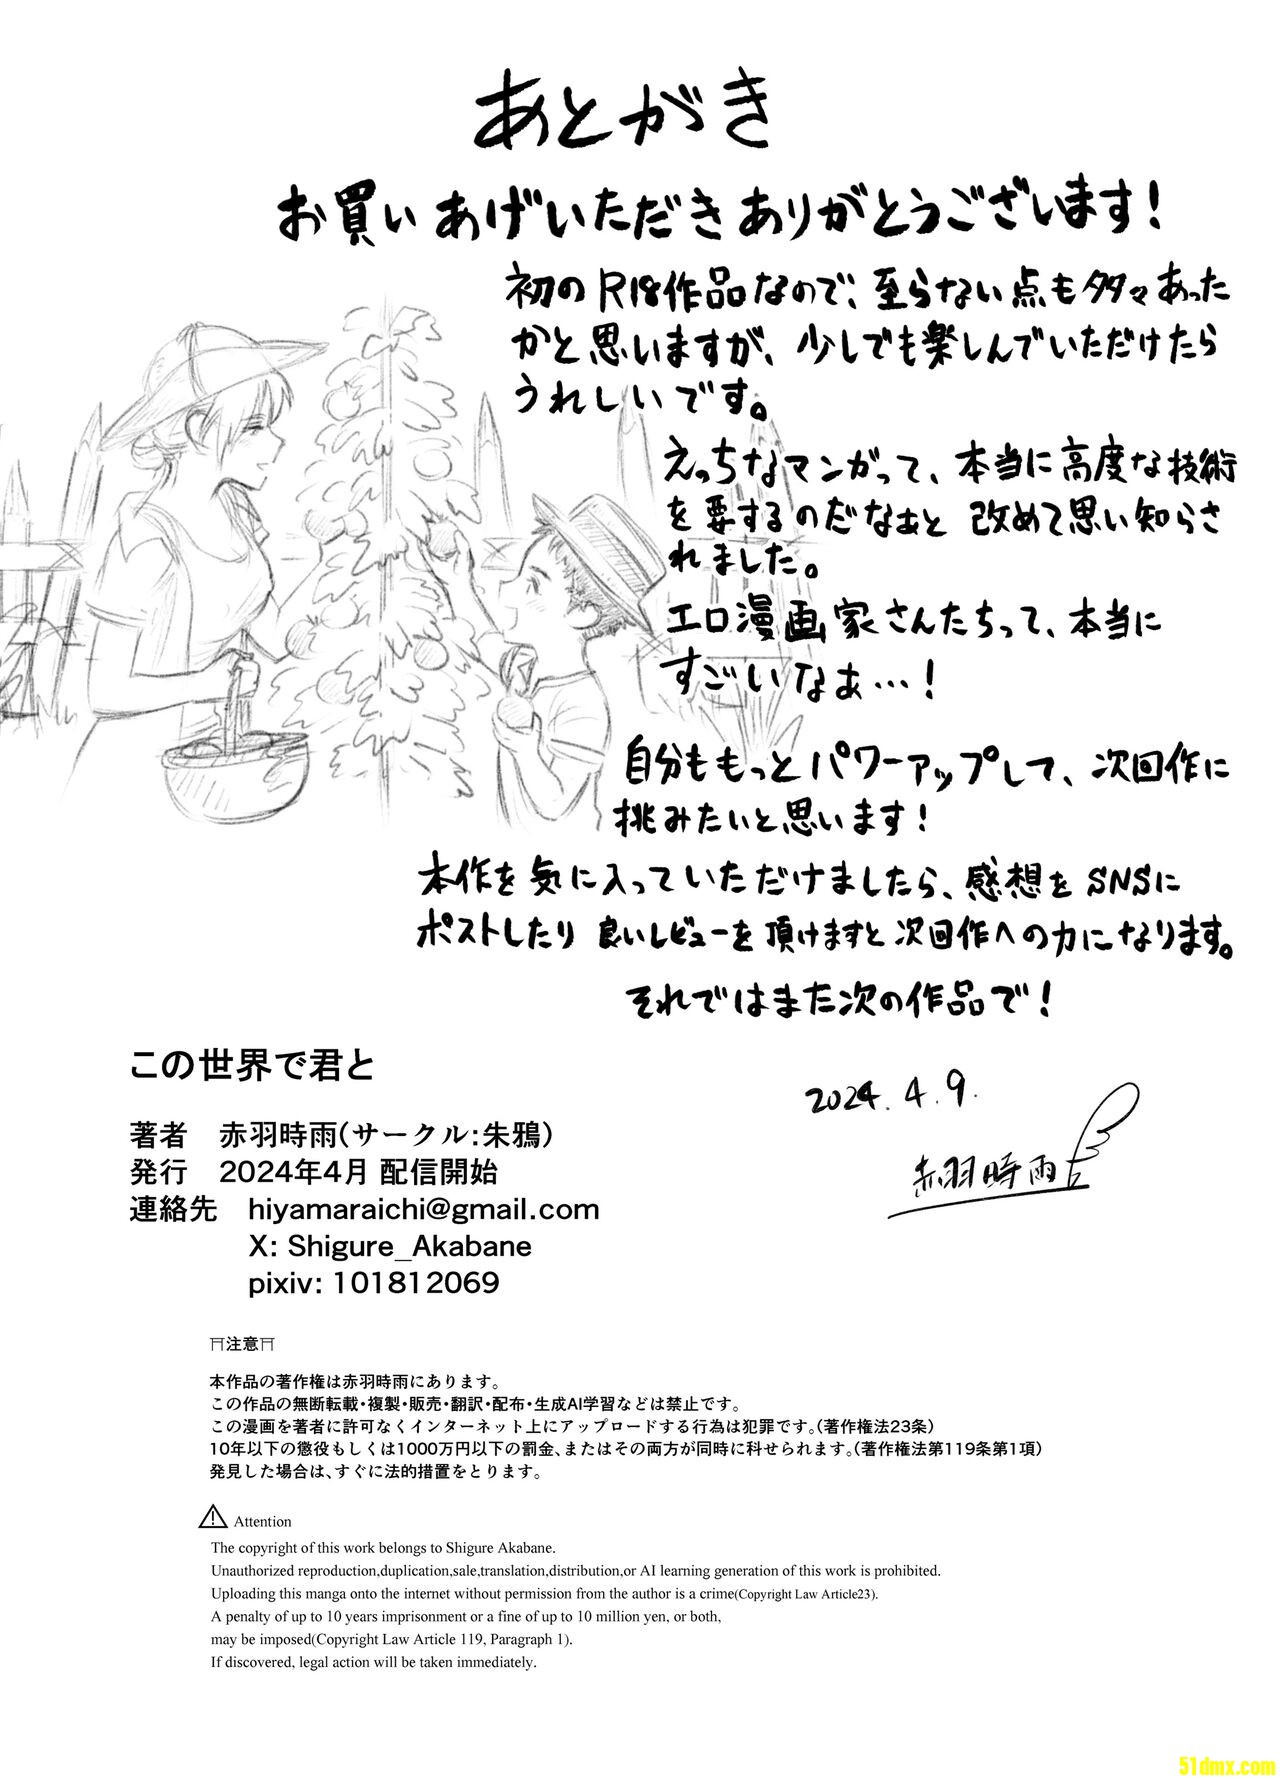 あとがき
お買いあげいただきありがとうございます！
初のR18作品なので、至らない点も多々あった
かと思いますが、少しでも楽しんでいただけたら
うれしいです。
えっちなマンガって、本当に高度な技術
を要するのだなぁと改めて思い知らさ
れました。
エロ漫画家さんたちって、本当に
すごいなぁ…！
自分ももっとパワーアップして、次回作に
挑みたいと思います！
本作を気に入っていただけましたら、感想をSNSに
ポストしたり良いレビューを頂けますと次回作への力になります。
それではまた次の作品で！
2024.4.9.
赤羽時雨
この世界で君と
著者 赤羽時雨(サークル:朱鴉)
発行 2024年4月 配信開始
連絡先 hiyamaraichi@gmail.com
X: Shigure_Akabane
pixiv: 101812069
⛩注意⛩
本作品の著作権は赤羽時雨にあります。
この作品の無断転載・複製・販売・翻訳・配布・生成AI学習などは禁止です。
この漫画を著者に許可なくインターネット上にアップロードする行為は犯罪です。(著作権法23条)
10年以下の懲役もしくは1000万円以下の罰金、またはその両方が同時に科せられます。(著作権法第119条第1項)
発見した場合は、すぐに法的措置をとります。
⚠ Attention
The copyright of this work belongs to Shigure Akabane.
Unauthorized reproduction,duplication,sale,translation,distribution,or AI learning generation of this work is prohibited.
Uploading this manga onto the internet without permission from the author is a crime(Copyright Law Article23).
A penalty of up to 10 years imprisonment or a fine of up to 10 million yen, or both,
may be imposed(Copyright Law Article 119, Paragraph 1).
If discovered, legal action will be taken immediately.
51dmx.com